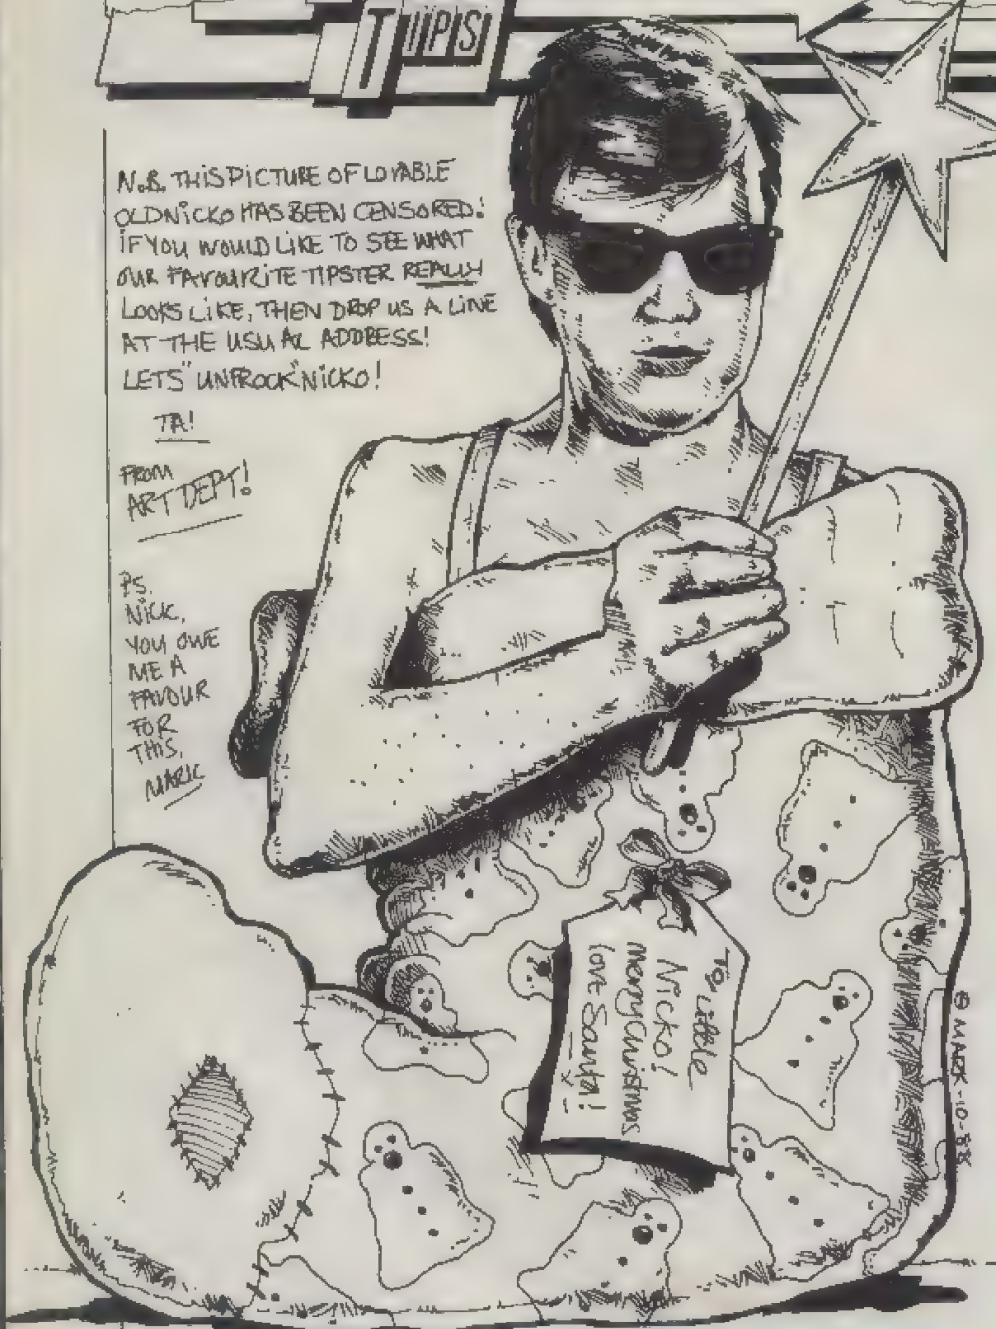 TIPS
N.B. THIS PICTURE OF LOVABLE
OLD NICKO HAS BEEN CENSORED!
IF YOU WOULD LIKE TO SEE WHAT
OUR FAVOURITE TIPSTER REALLY
LOOKS LIKE, THEN DROP US A LINE
AT THE USUAL ADDRESS!
LETS "UNFROCK" NICKO!
TA!
FROM
ART DEPT!
PS.
NICK,
YOU OWE
ME A
FAVOUR
FOR
THIS,
MARK
To Little
Nicko!
Merry Christmas
love Santa!
x
© MARK -10-88